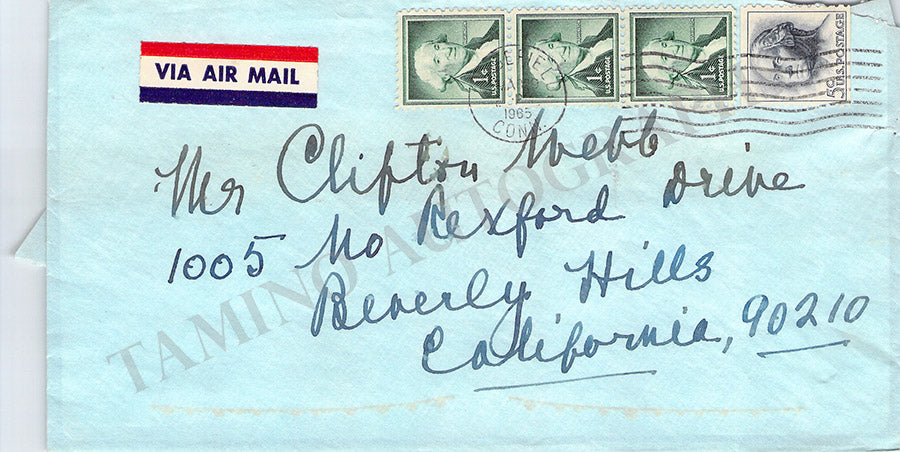 VIA AIR MAIL
1¢ U.S. POSTAGE
1¢ U.S. POSTAGE
1¢ U.S. POSTAGE
5¢ U.S. POSTAGE
1965
CONN.
Mr Clifton Webb
1005 No Rexford Drive
Beverly Hills
California, 90210
TAMINO AUTOGRAPHS